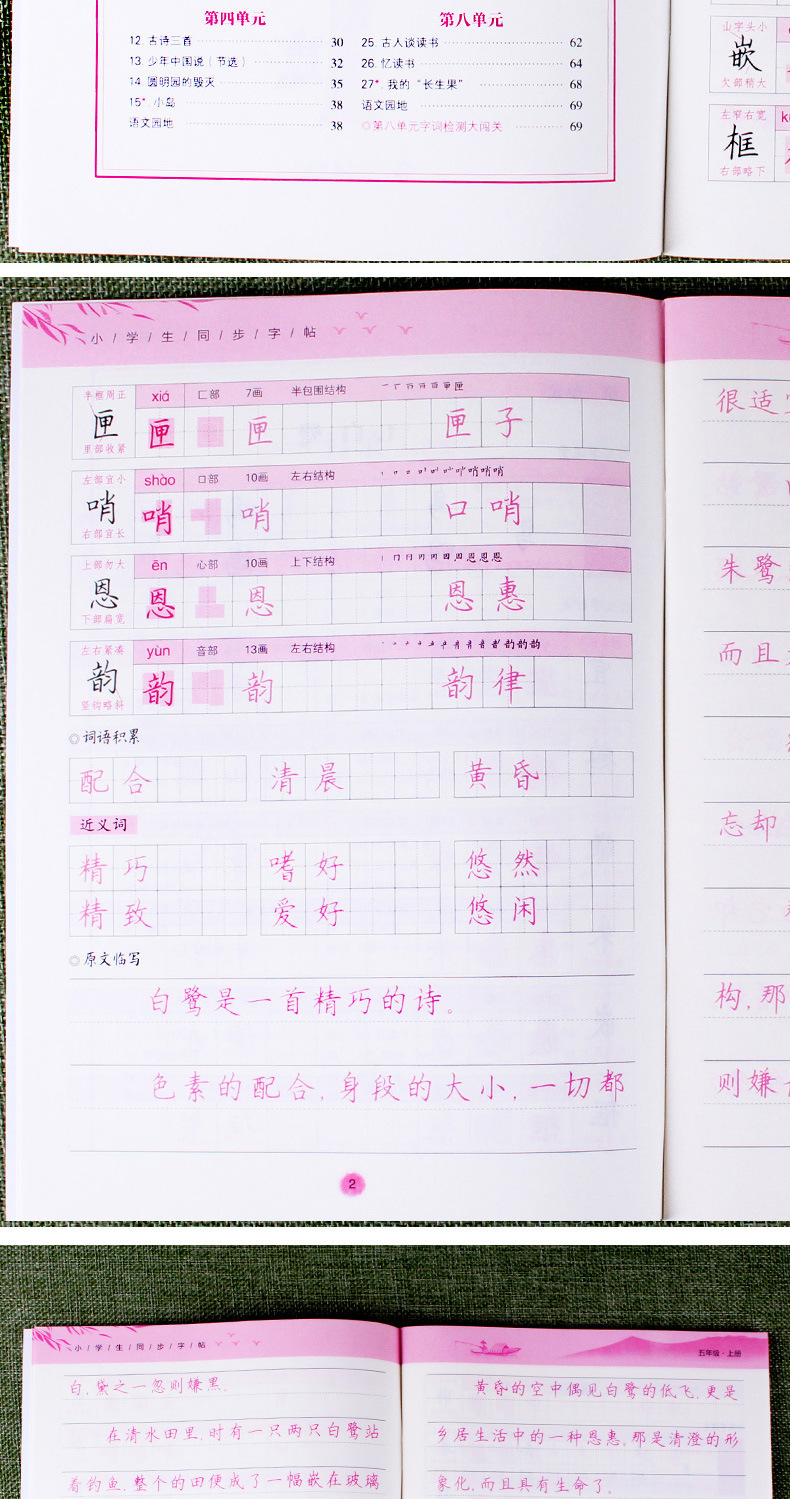 第四单元
12. 古诗三首 30
13. 少年中国说（节选） 32
14. 圆明园的毁灭 35
15*. 小岛 38
语文园地 38
第八单元
25. 古人谈读书 62
26. 忆读书 64
27*. 我的“长生果” 68
语文园地 69
◎第八单元字词检测大闯关 69
山字头小
嵌
欠部稍大
左窄右宽
框
右部略下
小/学/生/同/步/字/帖
半框周正 xiá 匚部 7画 半包围结构
匣 匣 匣 匣子
里部收紧
左部宜小 shào 口部 10画 左右结构
哨 哨 哨 口哨
右部宜长
上部勿大 ēn 心部 10画 上下结构
恩 恩 恩 恩惠
下部扁宽
左右紧凑 yùn 音部 13画 左右结构
韵 韵 韵 韵律
竖钩略斜
◎词语积累
配合 清晨 黄昏
近义词
精巧 嗜好 悠然
精致 爱好 悠闲
◎原文临写
白鹭是一首精巧的诗。
色素的配合,身段的大小,一切都
2
很适
朱鹭
而且
忘却
构,那
则嫌
小/学/生/同/步/字/帖
白,黛之一忽则嫌黑。
在清水田里,时有一只两只白鹭站
着钓鱼,整个的田便成了一幅嵌在玻璃
五年级·上册
黄昏的空中偶见白鹭的低飞,更是
乡居生活中的一种恩惠。那是清澄的形
象化,而且具有生命了。